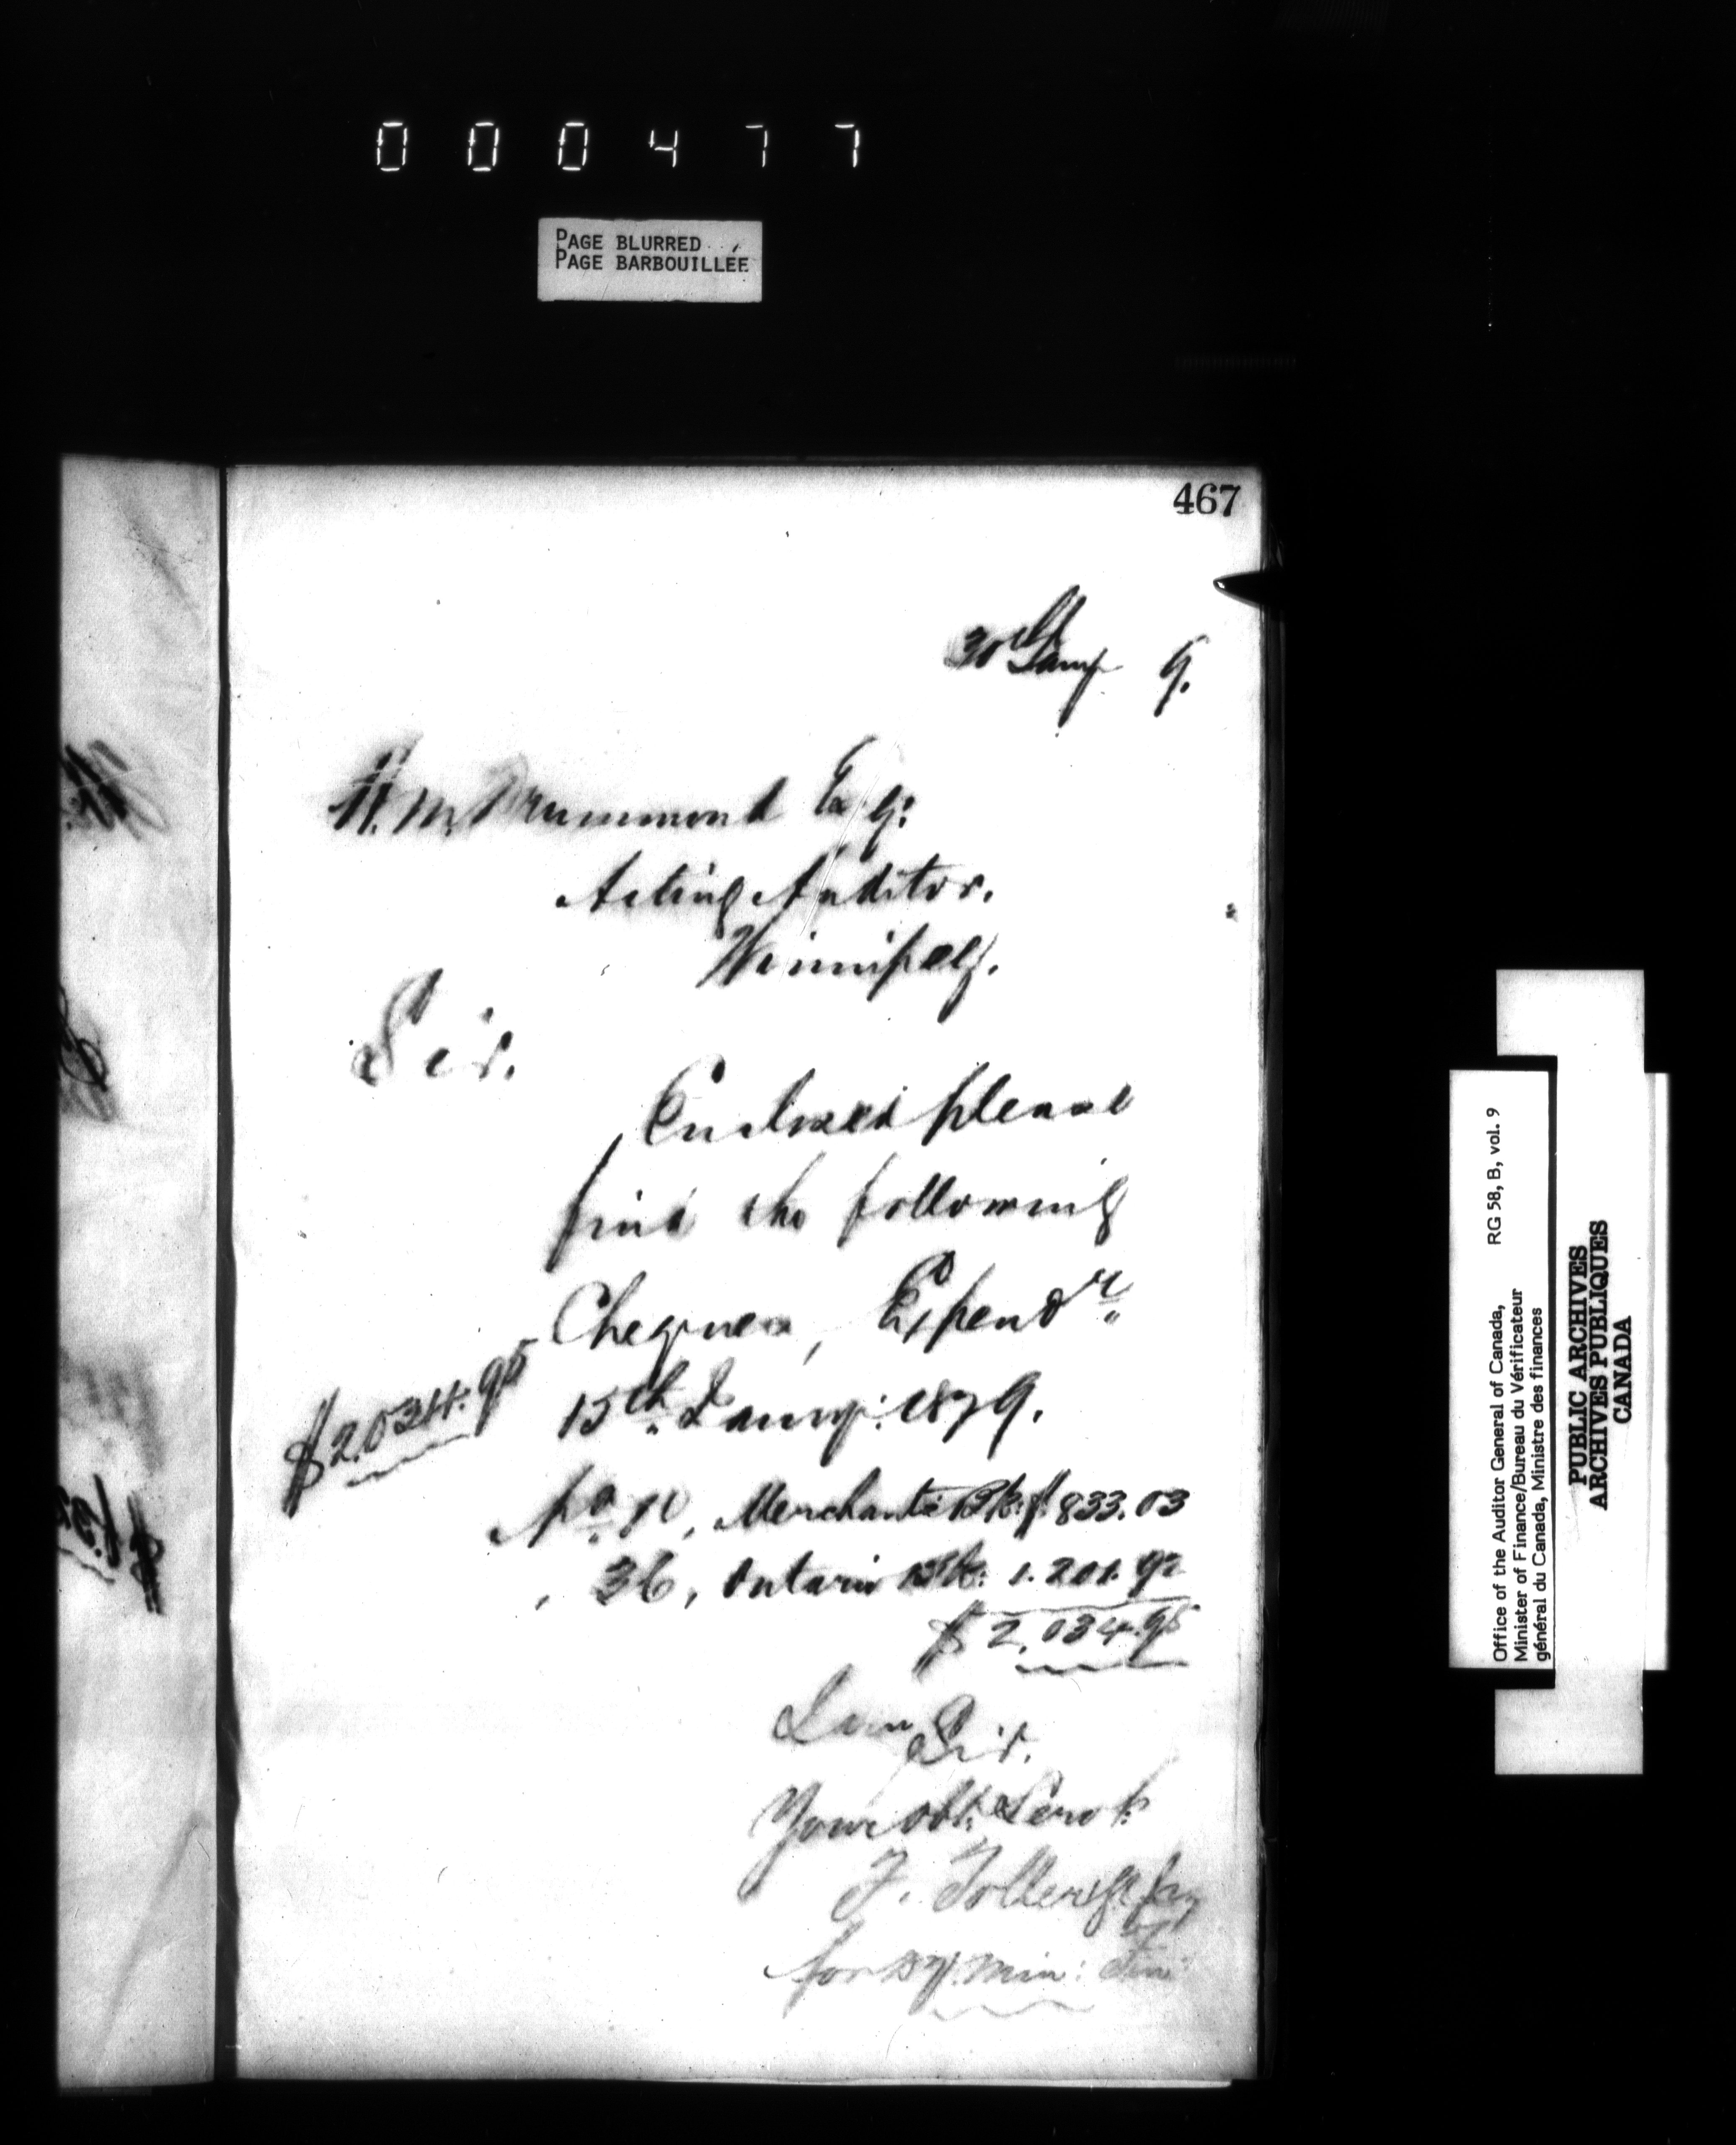 000477
PAGE BLURRED
PAGE BARBOUILLÉE
467
30th Jany 9.
H. M. Drummond Esq:
Acting Auditor.
Winnipeg.
Sir.
Enclosed please
find the following
Cheques, Expendre
$2.034.95 15th Jany: 1879.
No 10, Merchants Bk: $ 833.03
, 36, Ontario Bk: 1.201.92
$ 2,034.95
I am Sir.
Your obt: Servt:
F. Toller
for Dy. Min: Fin:
Office of the Auditor General of Canada, RG 58, B, vol. 9
Minister of Finance/Bureau du Vérificateur
général du Canada, Ministre des finances
PUBLIC ARCHIVES
ARCHIVES PUBLIQUES
CANADA